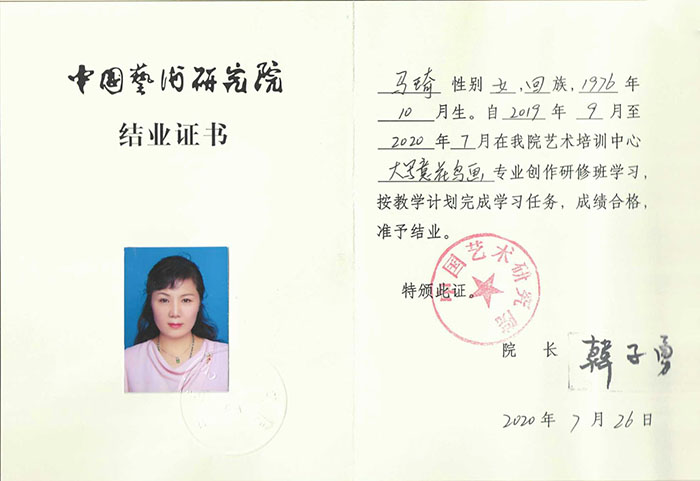 中国藝術研究院
结业证书
马琦 性别 女,回族,1976年
10月生。自2019年 9月至
2020年7月在我院艺术培训中心
大写意花鸟画,专业创作研修班学习,
按教学计划完成学习任务,成绩合格,
准予结业。
中国艺术研究院
特颁此证。
院 长 韓子勇
2020年7月26日